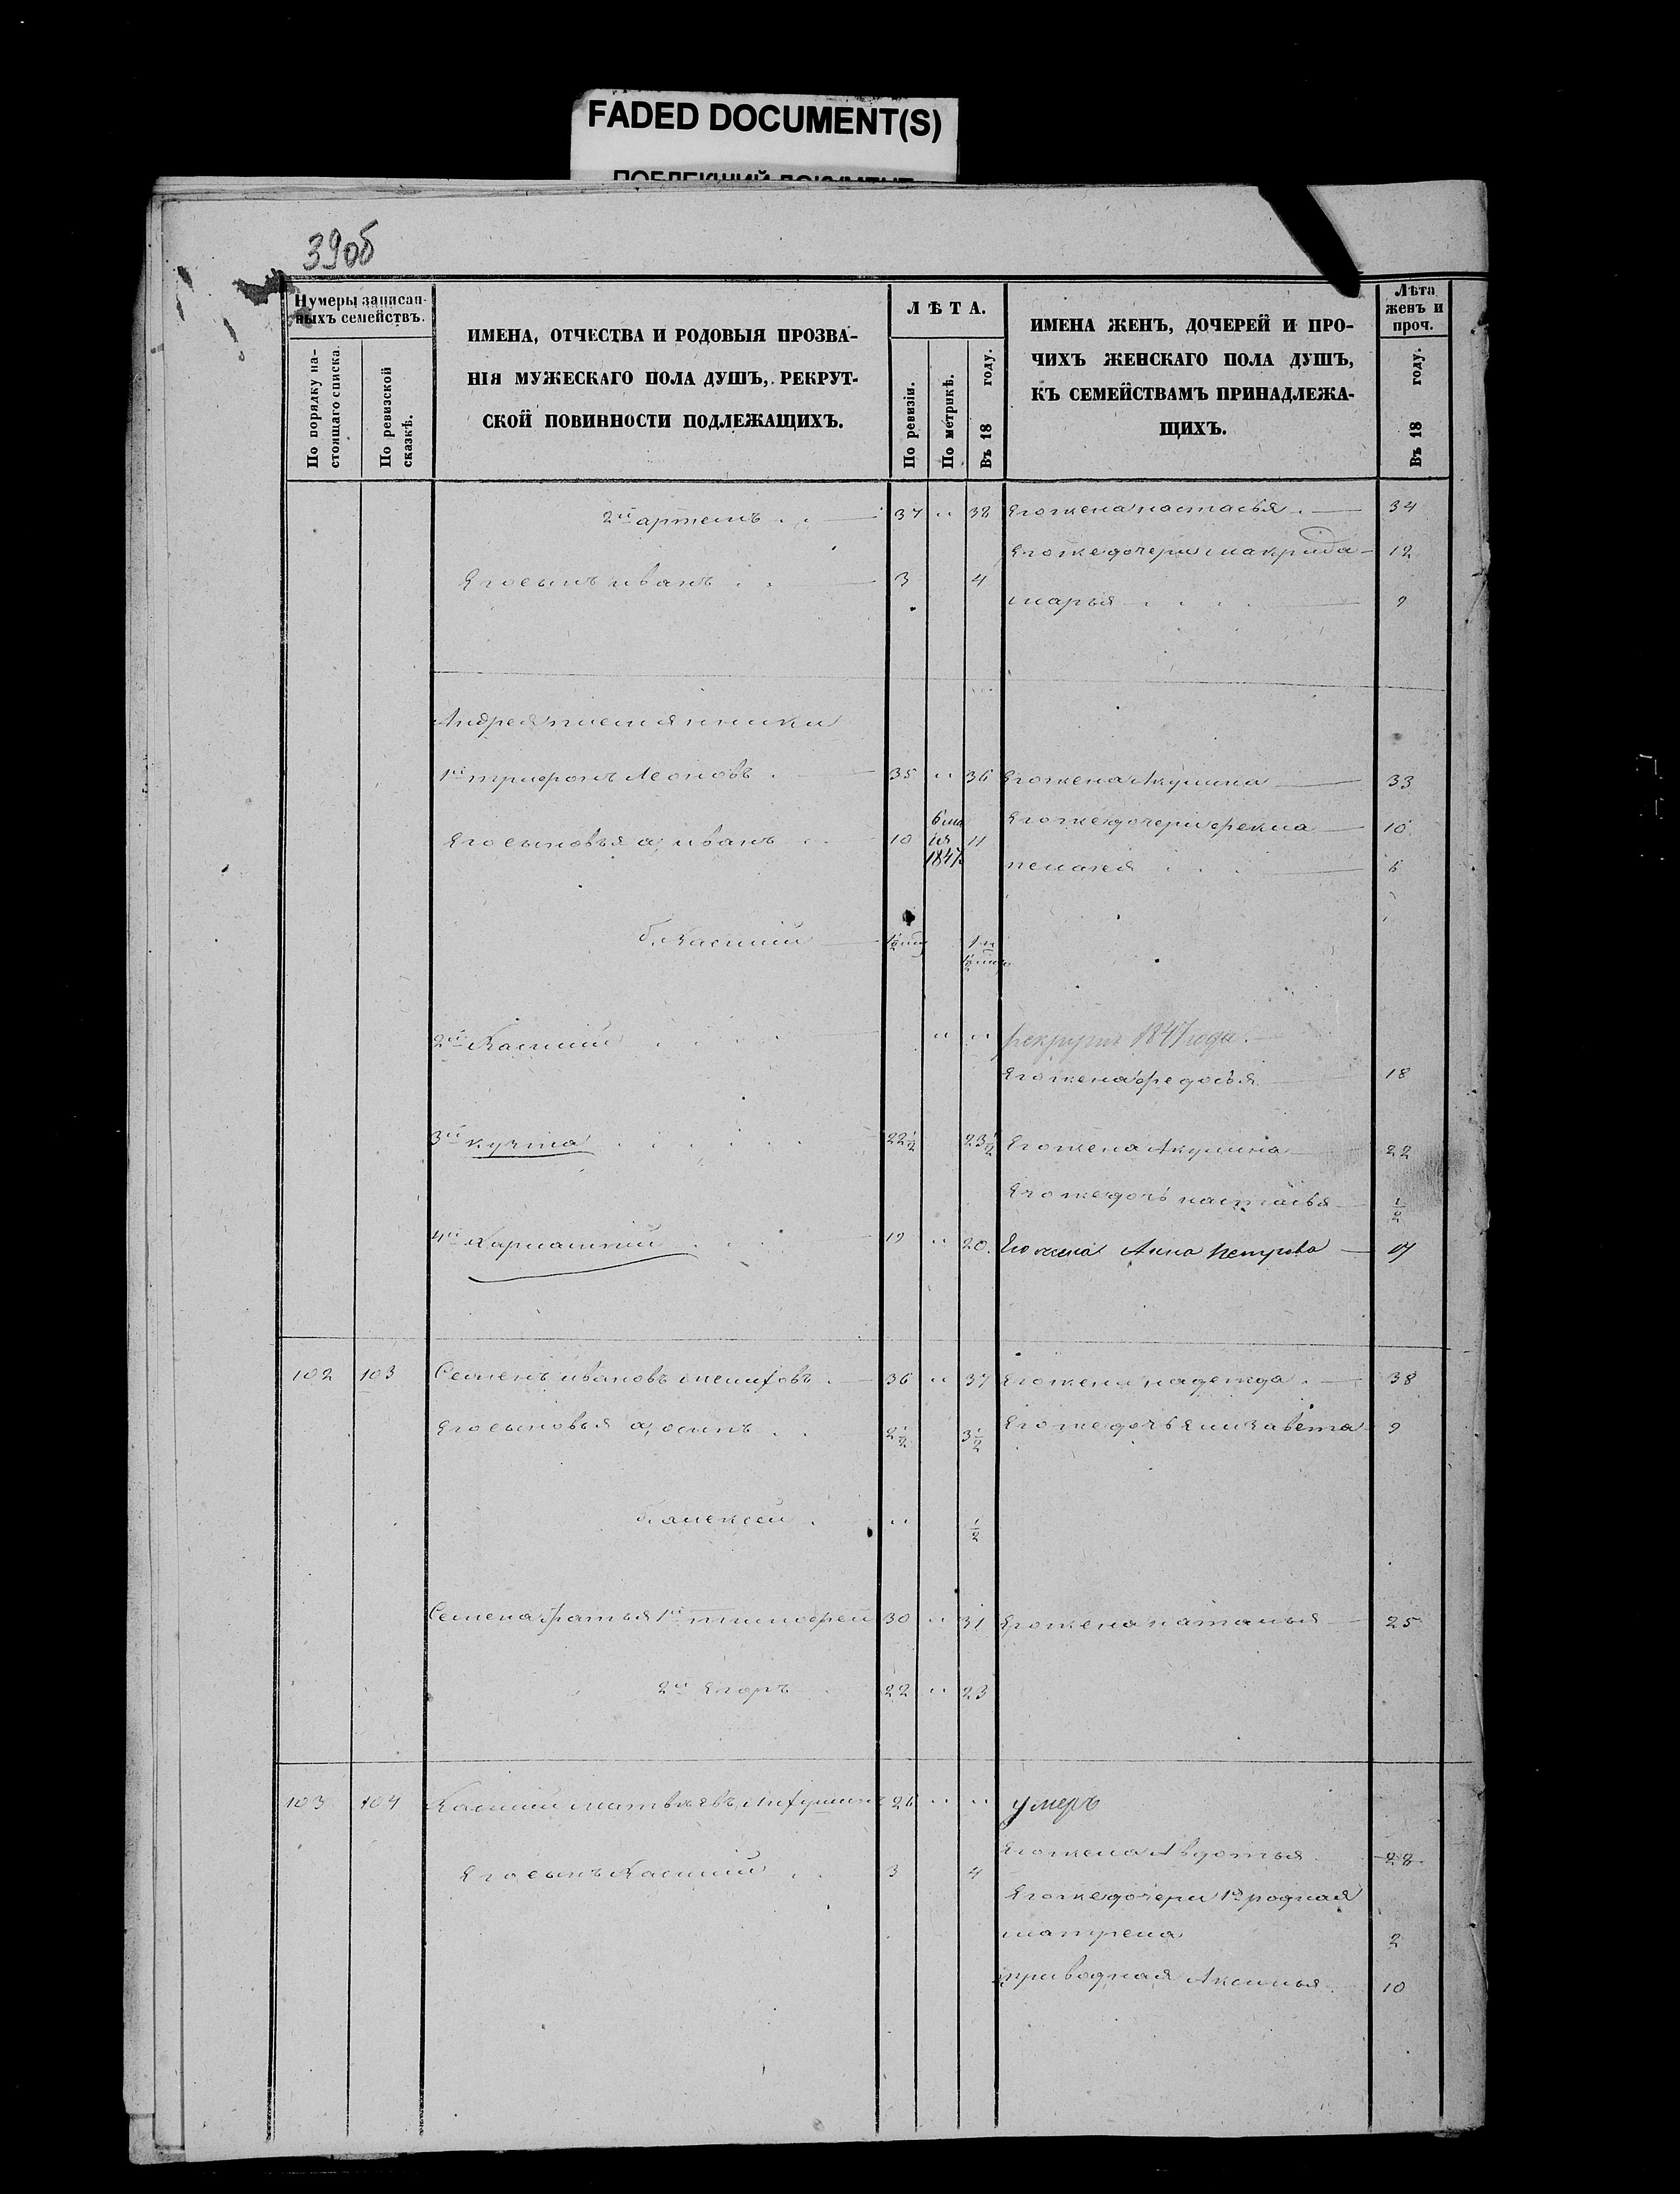 FADED DOCUMENT(S)
39об
Нумеры записан-
ныхъ семействъ.
По порядку на-
стоящаго списка.
По ревизской
сказкѣ.
ИМЕНА, ОТЧЕСТВА И РОДОВЫЯ ПРОЗВА-
НІЯ МУЖЕСКАГО ПОЛА ДУШЪ, РЕКРУТ-
СКОЙ ПОВИННОСТИ ПОДЛЕЖАЩИХЪ.
ЛѢТА.
По ревизіи.
По метрикѣ.
Въ 18 году.
ИМЕНА ЖЕНЪ, ДОЧЕРЕЙ И ПРО-
ЧИХЪ ЖЕНСКАГО ПОЛА ДУШЪ,
КЪ СЕМЕЙСТВАМЪ ПРИНАДЛЕЖА-
ЩИХЪ.
Лѣта
женъ и
проч.
Въ 18 году.
2й артемъ 37 " 38 Его жена настасья 34
Его же дочери макрида 12
Его сынъ иванъ 3 4
марья 9
Андрея племянники
1й трифонъ Леоновъ 35 " 36 Его жена Акулина 33
Его сыновья а, иванъ 10 6 ма ія 1847 11 Его же дочери фекла 10
пелагея 6
б. Василий
2й Василий " " рекрутъ 1847 года.
Его жена федосья 18
3й кузма 22 1/2 23 1/2 Его жена Акулина 22
Его же дочь настасья 1/2
4й Харлампий 19 " 20. Его жена Анна Петрова 17
102 103 Семенъ ивановъ 36 " 37 Его жена надежда 38
Его сыновья а, осипъ 2 1/2 3 1/2 Его же дочь Елизавета 9
б. алексей " 1/2
Семена братья 1й тимофей 30 " 31 Его жена наталья 25
2й Егоръ 22 " 23
103 104 Василий матвѣевъ 26 " " умеръ
Его жена Авдотья 28
Его сынъ Василий 3 4
Его же дочери 1я родная
матрена 2
приводная Аксинья 10